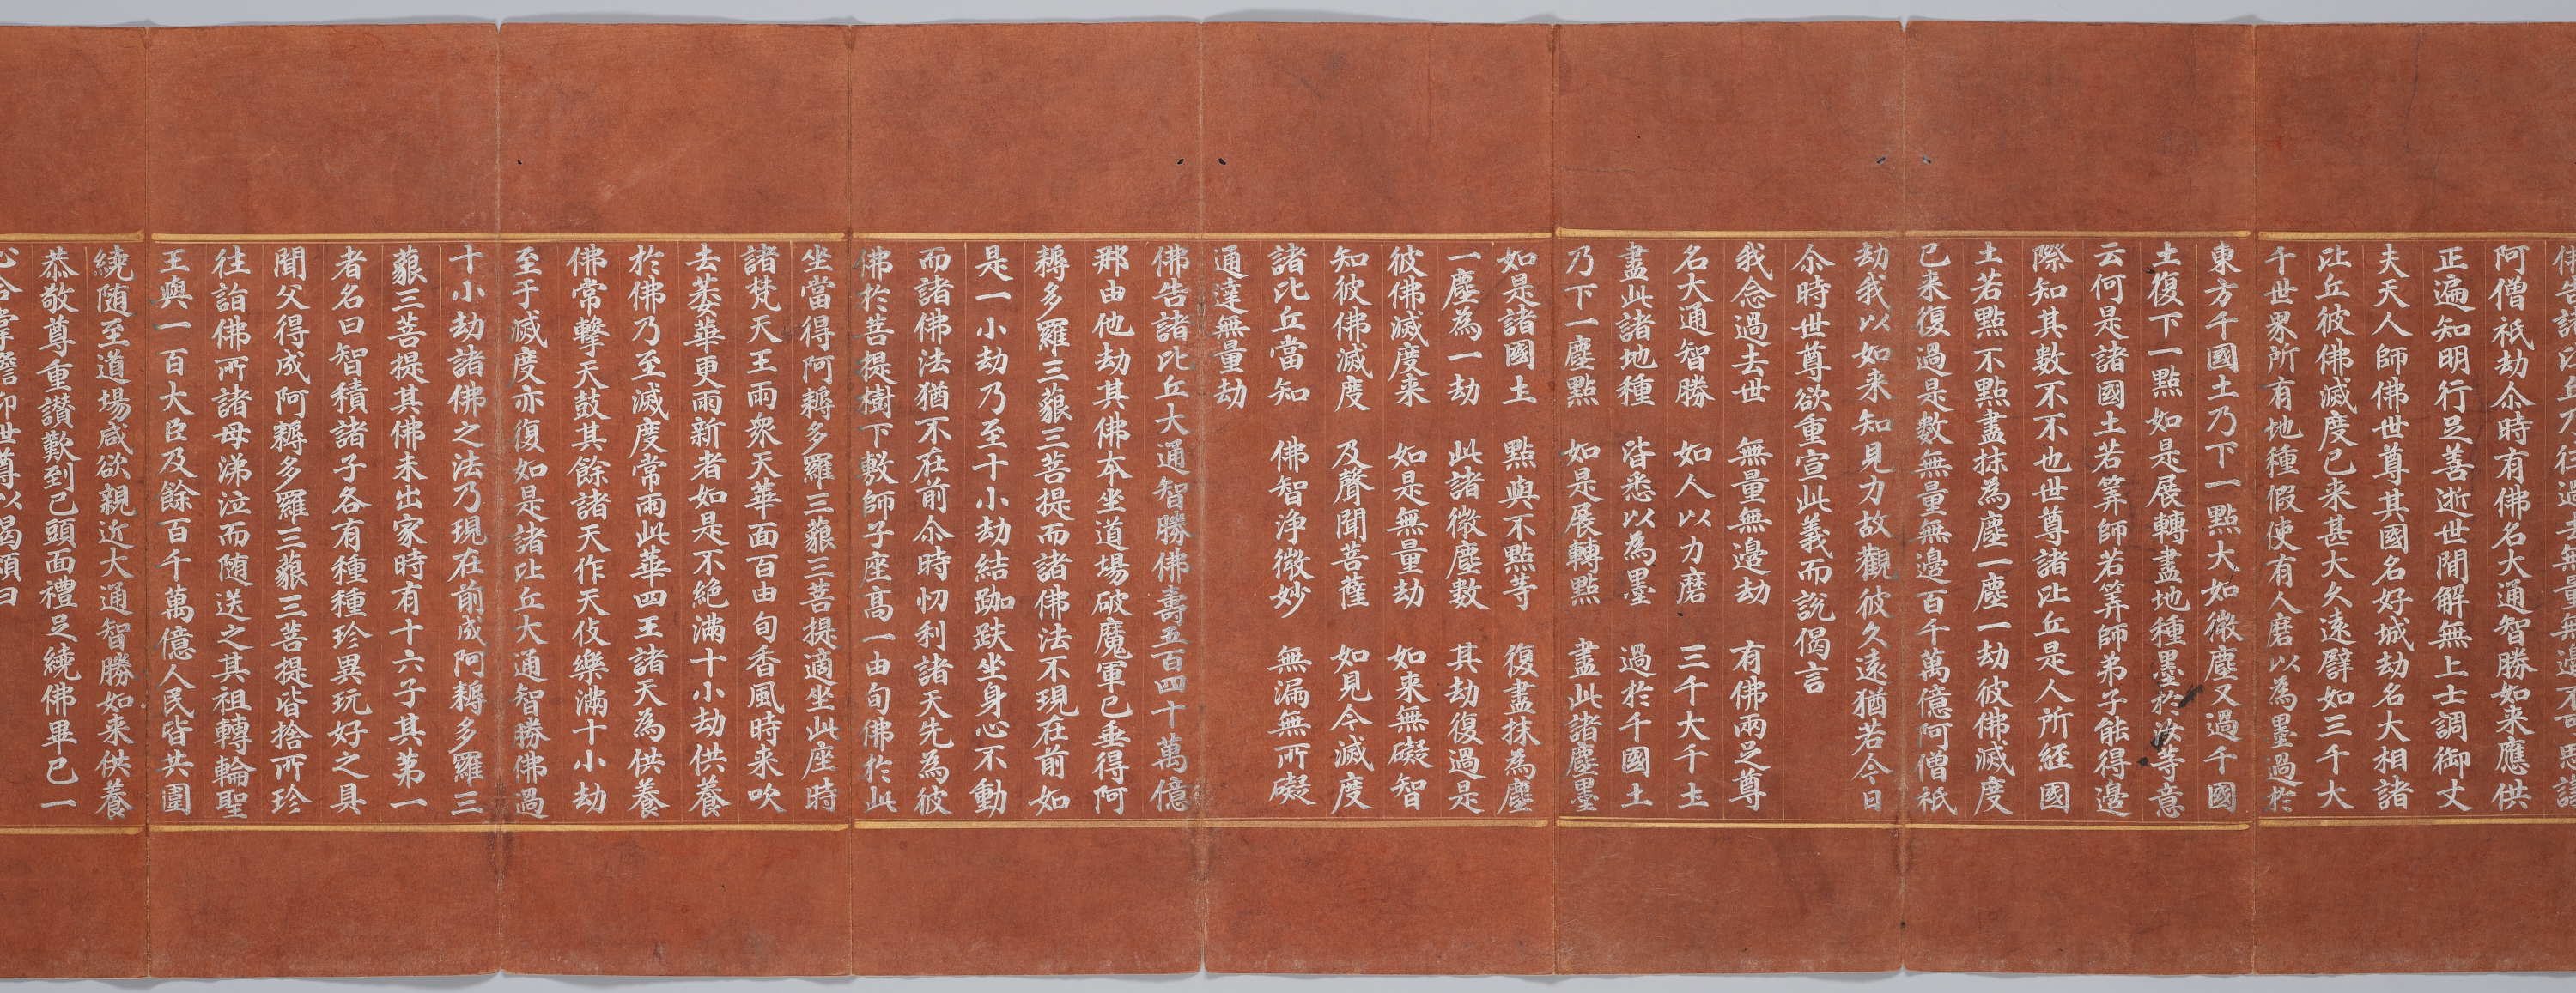 阿僧祇劫尒時有佛名大通智勝如来應供
正遍知明行足善逝世間解無上士調御丈
夫天人師佛世尊其國名好城劫名大相諸
比丘彼佛滅度已来甚大久遠辟如三千大
千世界所有地種假使有人磨以為墨過於
東方千國土乃下一點大如微塵又過千國
土復下一點如是展轉盡地種墨於汝等意
云何是諸國土若筭師若筭師弟子能得邊
際知其數不不也世尊諸比丘是人所經國
土若點不點盡抹為塵一塵一劫彼佛滅度
已来復過是數無量無邊百千萬億阿僧祇
劫我以如来知見力故觀彼久遠猶若今日
尒時世尊欲重宣此義而說偈言
我念過去世　無量無邊劫　有佛兩足尊
名大通智勝　如人以力磨　三千大千土
盡此諸地種　皆悉以為墨　過於千國土
乃下一塵點　如是展轉點　盡此諸塵墨
如是諸國土　點與不點等　復盡抹為塵
一塵為一劫　此諸微塵數　其劫復過是
彼佛滅度来　如是無量劫　如来無礙智
知彼佛滅度　及聲聞菩薩　如見今滅度
諸比丘當知　佛智淨微妙　無漏無所礙
通達無量劫
佛告諸比丘大通智勝佛壽五百四十萬億
那由他劫其佛本坐道場破魔軍已垂得阿
耨多羅三藐三菩提而諸佛法不現在前如
是一小劫乃至十小劫結跏趺坐身心不動
而諸佛法猶不在前尒時忉利諸天先為彼
佛於菩提樹下敷師子座高一由旬佛於此
坐當得阿耨多羅三藐三菩提適坐此座時
諸梵天王雨眾天華面百由旬香風時来吹
去萎華更雨新者如是不絕滿十小劫供養
於佛乃至滅度常雨此華四王諸天為供養
佛常擊天鼓其餘諸天作天伎樂滿十小劫
至于滅度亦復如是諸比丘大通智勝佛過
十小劫諸佛之法乃現在前成阿耨多羅三
藐三菩提其佛未出家時有十六子其第一
者名曰智積諸子各有種種珍異玩好之具
聞父得成阿耨多羅三藐三菩提皆捨所珍
往詣佛所諸母涕泣而随送之其祖轉輪聖
王與一百大臣及餘百千萬億人民皆共圍
繞随至道場咸欲親近大通智勝如来供養
恭敬尊重讃歎到已頭面禮足繞佛畢已一